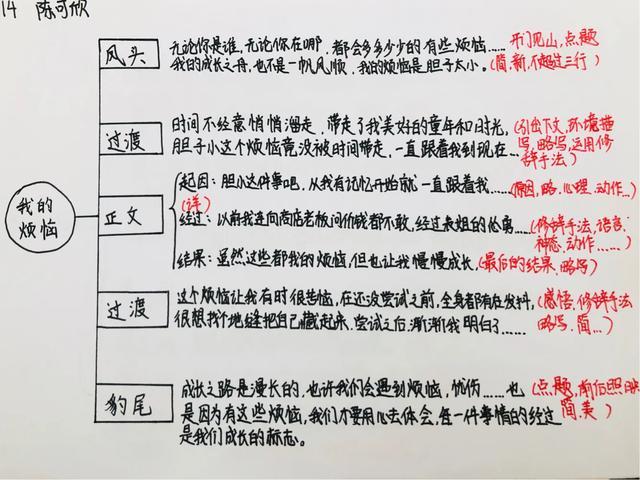 14 陈可欣
我的
烦恼
凤头
无论你是谁,无论你在哪,都会多多少少的有些烦恼……开门见山,点题
我的成长之舟,也不是一帆风顺,我的烦恼是胆子太小。(简,新,不超过三行)
过渡
时间不经意悄悄溜走,带走了我美好的童年和时光,(引出下文,环境描
胆子小这个烦恼竟没被时间带走,一直跟着我到现在…写,略写,运用修
辞手法)
正文
起因:胆小这件事吧,从我有记忆开始就一直跟着我……(原因,略,心理,动作…)
(详)
经过:以前我连向商店老板问价钱都不敢,经过表姐的怂勇……(修辞手法,语言,
神态,动作……)
结果:虽然这些都我的烦恼,但也让我慢慢成长,(最后的结果,略写)
过渡
这个烦恼让我有时很苦恼,在还没尝试之前,全身都有在发抖,(感悟,修辞手法
很想找个地缝把自己藏起来,尝试之后,渐渐我明白了……略写,简…)
豹尾
成长之路是漫长的,也许我们会遇到烦恼,忧伤……也(点题,前后照映
是因为有这些烦恼,我们才要用心去体会,每一件事情的经过简,美)
是我们成长的标志。